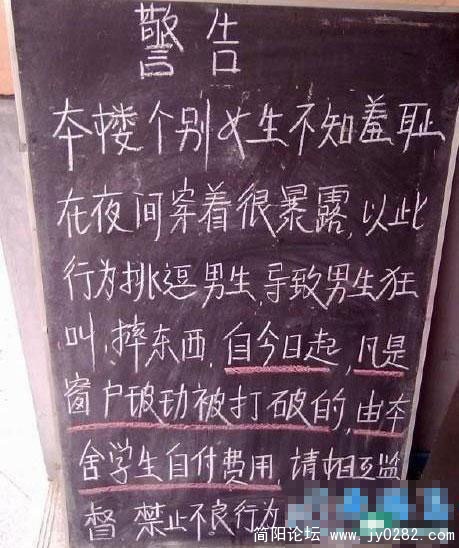 警告
本楼个别女生不知羞耻
在夜间穿着很暴露,以此
行为挑逗男生,导致男生狂
叫,摔东西,自今日起,凡是
窗户玻璃被打破的,由本
舍学生自付费用,请相互监
督 禁止不良行为
简阳论坛 www.jy0282.com